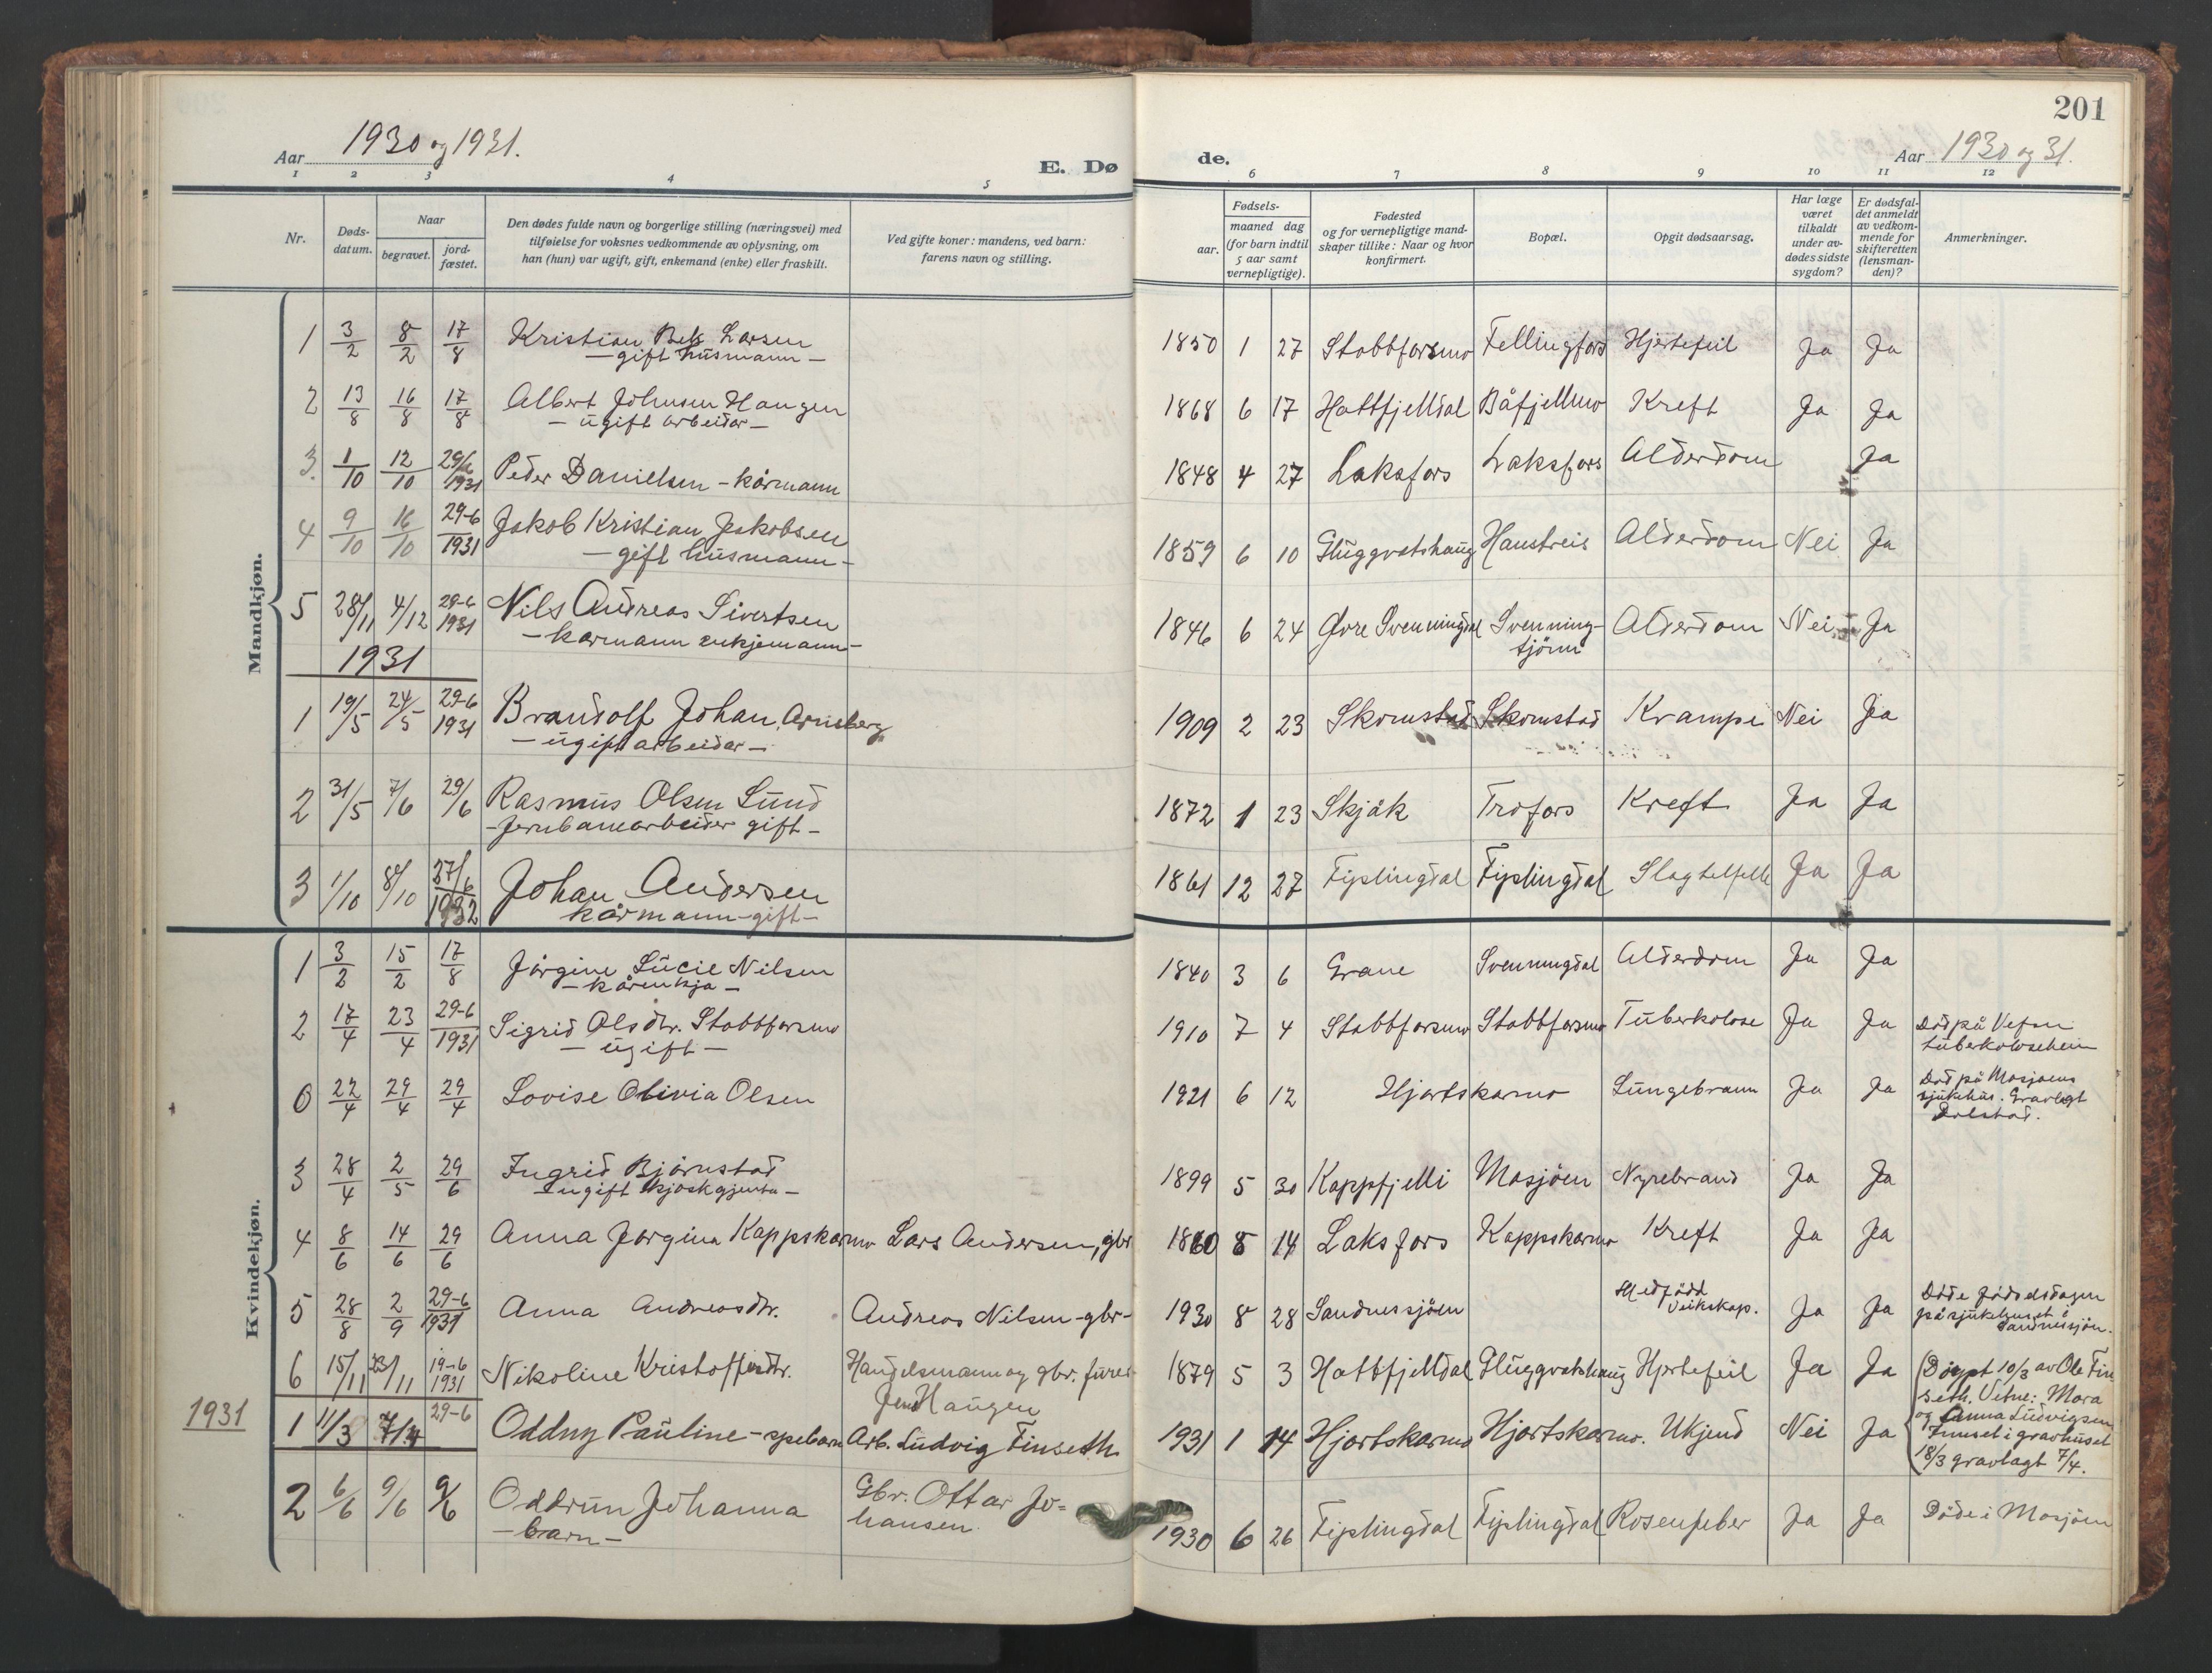 201
Aar 1930 og 1931.
E. Dø
de.
Aar 1930 og 31.
1 2 3 4 5 6 7 8 9 10 11 12
Nr.
Døds-
datum.
Naar
begravet.
jord-
fæstet.
Den dødes fulde navn og borgerlige stilling (næringsvei) med
tilføielse for voksnes vedkommende av oplysning, om
han (hun) var ugift, gift, enkemand (enke) eller fraskilt.
Ved gifte koner: mandens, ved barn:
farens navn og stilling.
Fødsels-
aar.
maaned dag
(for barn indtil
5 aar samt
vernepligtige).
Fødested
og for vernepligtige mand-
skaper tillike: Naar og hvor
konfirmert.
Bopæl.
Opgit dødsaarsag.
Har læge
været
tilkaldt
under av-
dødes sidste
sygdom?
Er dødsfal-
det anmeldt
av vedkom-
mende for
skifteretten
(lensman-
den)?
Anmerkninger.
Mandkjøn.
1 3/2 8/2 17/8 Kristian Larsen 1850 1 27 Stabbforsmo Fellingfors Hjertefeil Ja Ja
- gift husmann -
2 13/8 16/8 17/8 Albert Johnsen Haugen 1868 6 17 Hattfjelldal Båfjellmo Kreft Ja Ja
- ugift arbeidar -
3. 1/10 12/10 29/6 1931 Peder Danielsen - kårmann 1848 4 27 Laksfors Laksfors Alderdom Ja
4 9/10 16/10 29-6 1931 Jakob Kristian Jakobsen 1859 6 10 Gluggvatshaug Haustreis Alderdom Nei Ja
- gift husmann -
5 28/11 4/12 29-6 1931 Nils Andreas Sivertsen 1846 6 24 Øvre Svenningdal Svenning- Alderdom Nei Ja
tjönn
- kårmann enkjemann -
1931
1 19/5 24/5 29-6 1931 Brandolf Johan Arneberg 1909 2 23 Skomstad Skomstad Krampe Nei Ja
- ugift arbeidar -
2 31/5 7/6 29/6 Rasmus Olsen Lund 1872 1 23 Skjåk Trofors Kreft Ja Ja
- Jernbanearbeider gift -
3 1/10 8/10 27/6 1932 Johan Andersen 1861 12 27 Fiplingdal Fiplingdal Slagtelfelle Ja Ja
kårmann - gift -
Kvindekjøn.
1 3/2 15/2 17/8 Jörgine Lucie Nilsen 1840 3 6 Grane Svenningdal Alderdom Ja Ja
- kårenkja -
2 17/4 23/4 29-6 1931 Sigrid Olsdtr. Stabbforsmo 1910 7 4 Stabbforsmo Stabbforsmo Tuberkolose Ja Ja Död på Vefsn
tuberkoloseheim
- ugift -
0 22/4 29/4 29/4 Lovise Olivia Olsen 1921 6 12 Hjortskarmo Lungebrann Ja Ja Död på Mosjøens
sjukehus. Gravlagt
Dolstad.
3 28/4 2/5 29/6 Ingrid Björnstad 1899 5 30 Kappfjelli Mosjöen Nyrebrand Ja Ja
- ugift kjøskgjenta -
4 8/6 14/6 29/6 Anna Jorgina Kappskarmo Lars Andersen, gbr 1860 8 14 Laksfors Kappskarmo Kreft Ja Ja
5 28/8 2/9 29-6 1931 Anna Andreasdtr. Andreas Nilsen - gbr - 1930 8 28 Sandnessjöen Medfödd
veikskap. Ja Ja Döde födselsdagen
på sjukehuset i
Sandnessjön.
6 15/11 23/11 19-6 1931 Nikoline Kristoffersdtr. Handelsmann og gbr.
Jens Haugen 1879 5 3 Hattfjelldal Gluggvatshaug Hjertefeil Ja Ja
1931
1 11/3 7/4 29-6 Oddny Pauline - spebarn Arb. Ludvig Finseth 1931 1 14 Hjortskarmo Hjortskarmo. Ukjend Nei Ja (Döypt 10/3 av Ole Fin
seth. Vitne: Mara
og Anna Ludvigsen
Innset i gravhuset
18/3 gravlagt 7/4.
2 6/6 9/6 9/6 Oddrun Johanna Gbr. Ottar Jo=
hansen 1930 6 26 Fiplingdal Fiplingdal Rosenfeber Ja Ja Döde i Mosjöen
- barn -